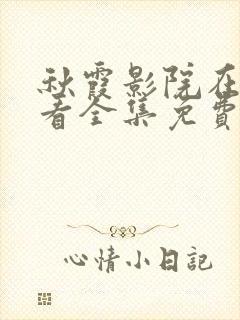 秋霞影院在
看全集免費
心情小日記